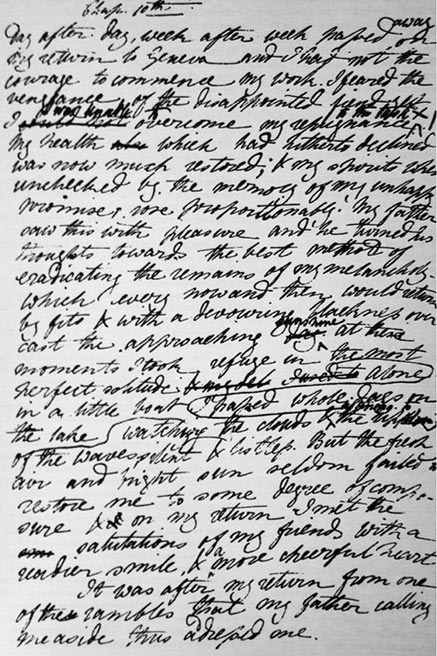 Chap. 10th.
away
Day after day, week after week passed on
my return to Geneva and I had not the
courage to commence my work. I feared the
vengeance of the disappointed fiend yet
I was unable to overcome my repugnance to the task
My health which had hitherto declined
was now much restored; & my spirits when
unchecked by the memory of my unhappy
promise, rose proportionably. My father
saw this with pleasure and he turned his
thoughts towards the best method of
eradicating the remains of my melancholy
which every now and then would return
by fits & with a devouring blackness over
sunshine
cast the approaching at these
moments I took refuge in the most
perfect solitude alone
in a little boat I passed whole days on
the lake watching the clouds &
of the waves silent & listless. But the fresh
air and bright sun seldom failed
restore me to some degree of compo-
sure & on my return I met the
salutations of my friends with a
readier smile & a more cheerful heart
It was after my return from one
of these rambles that my father calling
me aside thus adressed me.